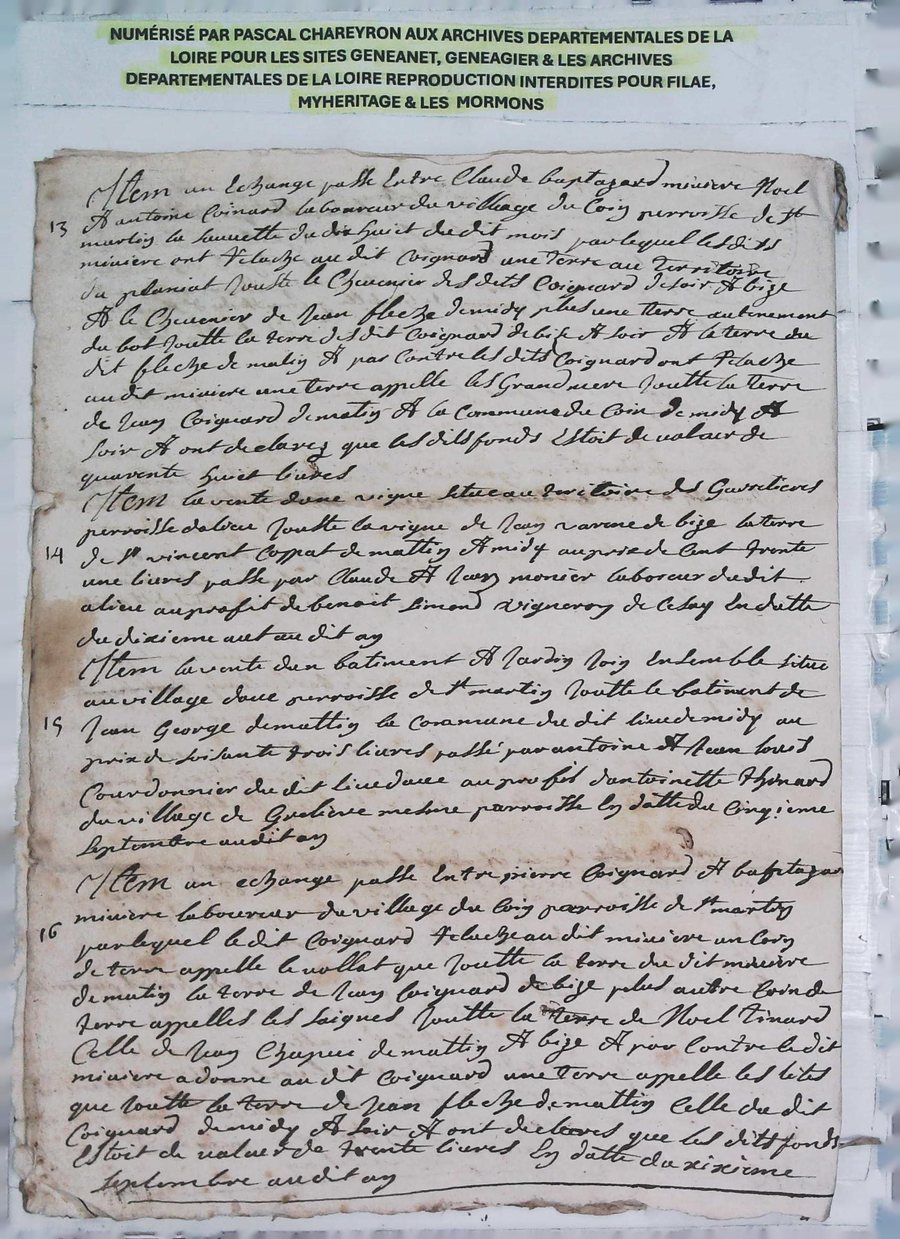 NUMÉRISÉ PAR PASCAL CHAREYRON AUX ARCHIVES DEPARTEMENTALES DE LA
LOIRE POUR LES SITES GENEANET, GENEAGIER & LES ARCHIVES
DEPARTEMENTALES DE LA LOIRE REPRODUCTION INTERDITES POUR FILAE,
MYHERITAGE & LES MORMONS
Item un Echange passé Entre Claude baptazard miniere Noel
13
& antoine Coinard laboureur du village du Coin perroisse de st
martin la sauvette du dix huict du dit mois par lequel les dits
miniere ont relache au dit Coignard une terre au territoire
du planiat Joutte le Cheuenier des dits Coignard de soir & bize
& le Cheuenier de Jean fleche de midy plus une terre au tenement
du bot Joutte la terre des dit Coignard de bize & soir & la terre du
dit fleche de matin & par Contre les dits Coignard ont relache
au dit miniere une terre appelle les Grand Joutte la terre
de Jean Coignard de matin & la Commune du Coin de midy &
soir & ont declarez que les dits fonds Estoit de valeur de
quarente huict livres
Item la vente dune vigne situe au territoire des
perroisse dalieu Joutte la vigne de Jean varene de bize la terre
14
de st vincent Coppat de mattin & midy au prix de Cent trente
une livres passe par Claude & Jean monier laboreur du dit
alieu au profit de benoit simond vigneron de Cesay En datte
du dixieme aut au dit an
Item la vente dun batiment & Jardin Join Ensemble situe
au village daue perroisse de st martin Joutte le batiment de
15
Jean George de mattin la Commune du dit lieu de midy au
prix de soisante trois livres passé par antoine & Jean louis
Courdonnier du dit lieu daue au profis dantoinette thinard
du village de Greliere mesme parroisse En datte du Cinqieme
septembre au dit an
Item un echange passé Entre pierre Coignard & baptazar
miniere laboureur du village du Coin parroisse de st martin
16
par lequel le dit Coignard relache au dit miniere un Coin
de terre appelle le vollat que Joutte la terre du dit miniere
de matin la terre de Jean Coignard de bize plus autre Coin de
terre appelles les saignes Joutte la terre de Noel tinard
Celle de Jean Chapui de mattin & bize & par Contre le dit
miniere a donne au dit Coignard une terre appelle les lites
que Joutte la terre de Jean fleche de mattin Celle du dit
Coignard de midy & soir & ont decleres que les dits fonds
Estoit de valeur de trente livres En datte du xixieme
septembre au dit an